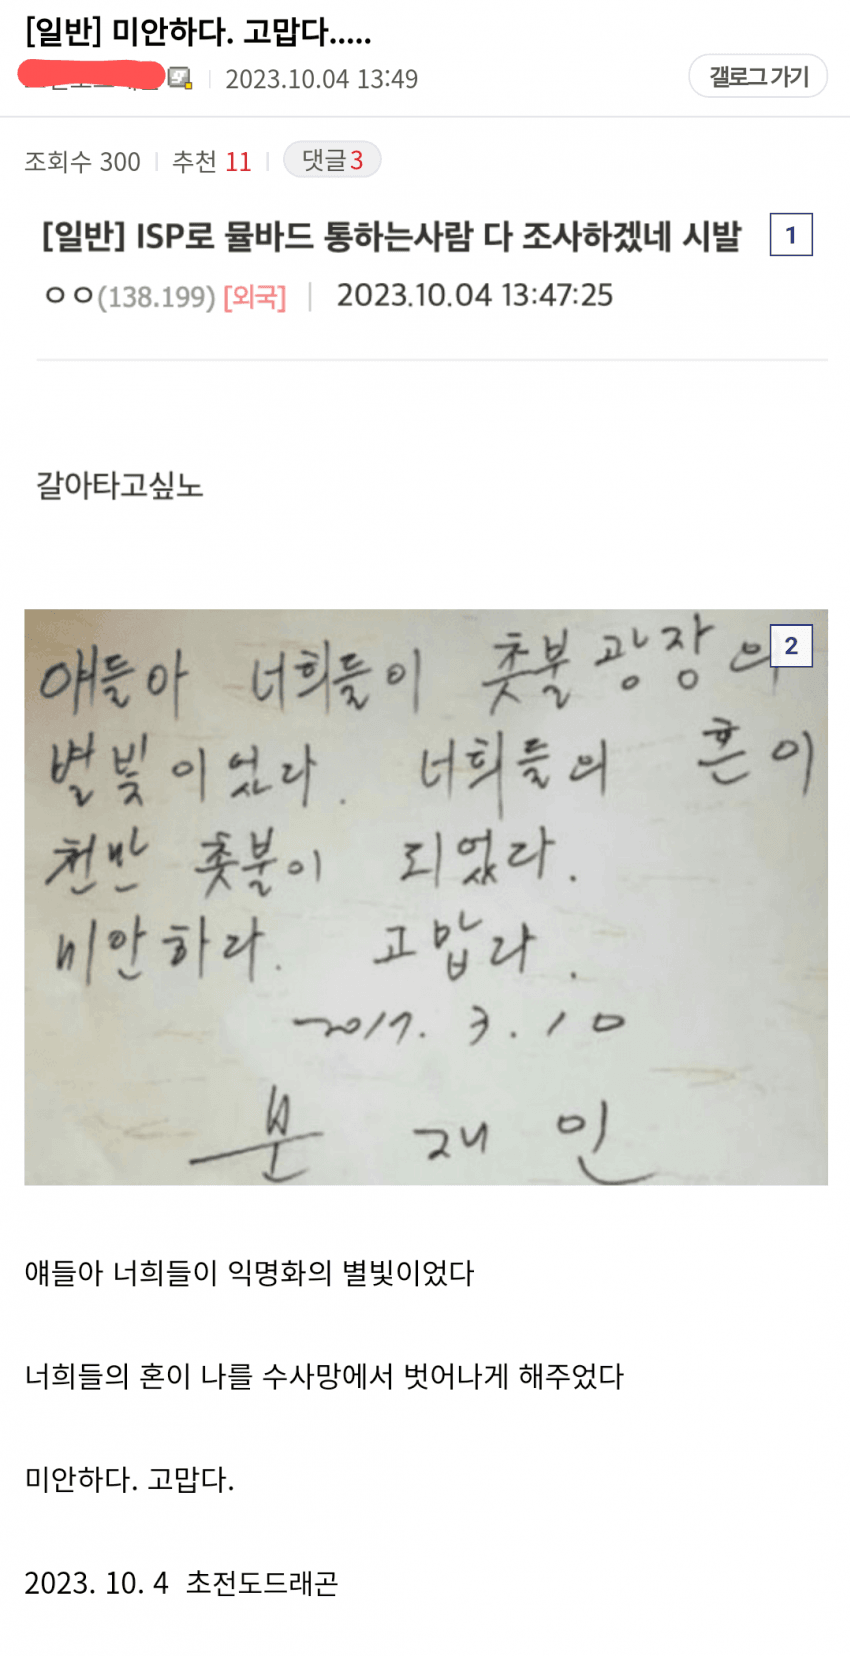 [일반] 미안하다. 고맙다.....
2023.10.04 13:49
갤로그 가기
조회수 300 추천 11 댓글 3
[일반] ISP로 뮬바드 통하는사람 다 조사하겠네 시발 1
ㅇㅇ(138.199) [외국] 2023.10.04 13:47:25
갈아타고싶노
얘들아 너희들이 촛불광장의 2
별빛이었다. 너희들의 혼이
천만 촛불이 되었다.
미안하다. 고맙다.
2017. 3. 10
문재인
얘들아 너희들이 익명화의 별빛이었다
너희들의 혼이 나를 수사망에서 벗어나게 해주었다
미안하다. 고맙다.
2023. 10. 4 초전도드래곤